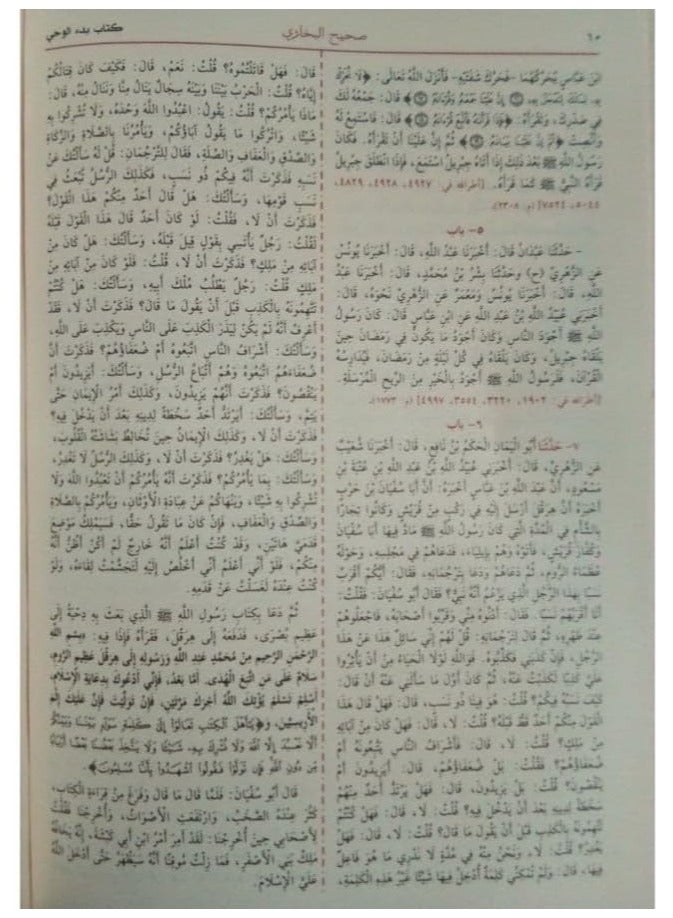 ٦٠
صحيح البخاري
كتاب بدء الوحي
ابْنُ عَبَّاسٍ يُحَرِّكُهُمَا - فَحَرَّكَ شَفَتَيْهِ - فَأَنْزَلَ اللهُ تَعَالَى: ﴿لَا تُحَرِّكْ
بِهِ لِسَانَكَ لِتَعْجَلَ بِهِ إِنَّ عَلَيْنَا جَمْعَهُ وَقُرْآنَهُ﴾ قَالَ: جَمْعُهُ لَكَ
فِي صَدْرِكَ، وَتَقْرَأَهُ: ﴿فَإِذَا قَرَأْنَاهُ فَاتَّبِعْ قُرْآنَهُ﴾ قَالَ: فَاسْتَمِعْ لَهُ
وَأَنْصِتْ ﴿ثُمَّ إِنَّ عَلَيْنَا بَيَانَهُ﴾ ثُمَّ إِنَّ عَلَيْنَا أَنْ تَقْرَأَهُ. فَكَانَ
رَسُولُ اللهِ ﷺ بَعْدَ ذَلِكَ إِذَا أَتَاهُ جِبْرِيلُ اسْتَمَعَ، فَإِذَا انْطَلَقَ جِبْرِيلُ
قَرَأَهُ النَّبِيُّ ﷺ كَمَا قَرَأَهُ. [أطرافه في: ٤٩٢٧، ٤٩٢٨، ٤٩٢٩،
٥٠٤٤، ٧٥٢٤]
٥- باب
- حَدَّثَنَا عَبْدَانُ قَالَ: أَخْبَرَنَا عَبْدُ اللهِ، قَالَ: أَخْبَرَنَا يُونُسُ
عَنِ الزُّهْرِيِّ (ح) وَحَدَّثَنَا بِشْرُ بْنُ مُحَمَّدٍ، قَالَ: أَخْبَرَنَا عَبْدُ
اللهِ، قَالَ: أَخْبَرَنَا يُونُسُ وَمَعْمَرٌ عَنِ الزُّهْرِيِّ نَحْوَهُ، قَالَ:
أَخْبَرَنِي عُبَيْدُ اللهِ بْنُ عَبْدِ اللهِ عَنِ ابْنِ عَبَّاسٍ قَالَ: كَانَ رَسُولُ
اللهِ ﷺ أَجْوَدَ النَّاسِ وَكَانَ أَجْوَدَ مَا يَكُونُ فِي رَمَضَانَ حِينَ
يَلْقَاهُ جِبْرِيلُ، وَكَانَ يَلْقَاهُ فِي كُلِّ لَيْلَةٍ مِنْ رَمَضَانَ، فَيُدَارِسُهُ
الْقُرْآنَ، فَلَرَسُولُ اللهِ ﷺ أَجْوَدُ بِالْخَيْرِ مِنَ الرِّيحِ الْمُرْسَلَةِ.
[أطرافه في: ١٩٠٢، ٣٢٢٠، ٣٥٥٤، ٤٩٩٧]
٦- باب
٧- حَدَّثَنَا أَبُو الْيَمَانِ الْحَكَمُ بْنُ نَافِعٍ، قَالَ: أَخْبَرَنَا شُعَيْبٌ
عَنِ الزُّهْرِيِّ، قَالَ: أَخْبَرَنِي عُبَيْدُ اللهِ بْنُ عَبْدِ اللهِ بْنِ عُتْبَةَ بْنِ
مَسْعُودٍ، أَنَّ عَبْدَ اللهِ بْنَ عَبَّاسٍ أَخْبَرَهُ: أَنَّ أَبَا سُفْيَانَ بْنَ حَرْبٍ
أَخْبَرَهُ أَنَّ هِرَقْلَ أَرْسَلَ إِلَيْهِ فِي رَكْبٍ مِنْ قُرَيْشٍ وَكَانُوا تِجَارًا
بِالشَّأْمِ فِي الْمُدَّةِ الَّتِي كَانَ رَسُولُ اللهِ ﷺ مَادَّ فِيهَا أَبَا سُفْيَانَ
وَكُفَّارَ قُرَيْشٍ، فَأَتَوْهُ وَهُمْ بِإِيلِيَاءَ، فَدَعَاهُمْ فِي مَجْلِسِهِ، وَحَوْلَهُ
عُظَمَاءُ الرُّومِ، ثُمَّ دَعَاهُمْ وَدَعَا بِتَرْجُمَانِهِ، فَقَالَ: أَيُّكُمْ أَقْرَبُ
نَسَبًا بِهَذَا الرَّجُلِ الَّذِي يَزْعُمُ أَنَّهُ نَبِيٌّ؟ فَقَالَ أَبُو سُفْيَانَ: فَقُلْتُ:
أَنَا أَقْرَبُهُمْ نَسَبًا. فَقَالَ: أَدْنُوهُ مِنِّي وَقَرِّبُوا أَصْحَابَهُ، فَاجْعَلُوهُمْ
عِنْدَ ظَهْرِهِ، ثُمَّ قَالَ لِتَرْجُمَانِهِ: قُلْ لَهُمْ إِنِّي سَائِلٌ هَذَا عَنْ هَذَا
الرَّجُلِ، فَإِنْ كَذَبَنِي فَكَذِّبُوهُ. فَوَاللهِ لَوْلَا الْحَيَاءُ مِنْ أَنْ يَأْثِرُوا
عَلَيَّ كَذِبًا لَكَذَبْتُ عَنْهُ، ثُمَّ كَانَ أَوَّلَ مَا سَأَلَنِي عَنْهُ أَنْ قَالَ:
كَيْفَ نَسَبُهُ فِيكُمْ؟ قُلْتُ: هُوَ فِينَا ذُو نَسَبٍ، قَالَ: فَهَلْ قَالَ هَذَا
الْقَوْلَ مِنْكُمْ أَحَدٌ قَطُّ قَبْلَهُ؟ قُلْتُ: لَا، قَالَ: فَهَلْ كَانَ مِنْ آبَائِهِ
مِنْ مَلِكٍ؟ قُلْتُ: لَا، قَالَ: فَأَشْرَافُ النَّاسِ يَتَّبِعُونَهُ أَمْ
ضُعَفَاؤُهُمْ؟ فَقُلْتُ: بَلْ ضُعَفَاؤُهُمْ، قَالَ: أَيَزِيدُونَ أَمْ
يَنْقُصُونَ؟ قُلْتُ: بَلْ يَزِيدُونَ، قَالَ: فَهَلْ يَرْتَدُّ أَحَدٌ مِنْهُمْ
سَخْطَةً لِدِينِهِ بَعْدَ أَنْ يَدْخُلَ فِيهِ؟ قُلْتُ: لَا، قَالَ: فَهَلْ كُنْتُمْ
تَتَّهِمُونَهُ بِالْكَذِبِ قَبْلَ أَنْ يَقُولَ مَا قَالَ؟ قُلْتُ: لَا، قَالَ: فَهَلْ
يَغْدِرُ؟ قُلْتُ: لَا، وَنَحْنُ مِنْهُ فِي مُدَّةٍ لَا نَدْرِي مَا هُوَ فَاعِلٌ
فِيهَا، قَالَ: وَلَمْ تُمْكِنِّي كَلِمَةٌ أُدْخِلُ فِيهَا شَيْئًا غَيْرُ هَذِهِ الْكَلِمَةِ،
قَالَ: فَهَلْ قَاتَلْتُمُوهُ؟ قُلْتُ: نَعَمْ، قَالَ: فَكَيْفَ كَانَ قِتَالُكُمْ
إِيَّاهُ؟ قُلْتُ: الْحَرْبُ بَيْنَنَا وَبَيْنَهُ سِجَالٌ يَنَالُ مِنَّا وَنَنَالُ مِنْهُ، قَالَ:
مَاذَا يَأْمُرُكُمْ؟ قُلْتُ: يَقُولُ: اعْبُدُوا اللهَ وَحْدَهُ، وَلَا تُشْرِكُوا بِهِ
شَيْئًا، وَاتْرُكُوا مَا يَقُولُ آبَاؤُكُمْ، وَيَأْمُرُنَا بِالصَّلَاةِ وَالزَّكَاةِ
وَالصِّدْقِ وَالْعَفَافِ وَالصِّلَةِ، فَقَالَ لِلتَّرْجُمَانِ: قُلْ لَهُ سَأَلْتُكَ عَنْ
نَسَبِهِ فَذَكَرْتَ أَنَّهُ فِيكُمْ ذُو نَسَبٍ، فَكَذَلِكَ الرُّسُلُ تُبْعَثُ فِي
نَسَبِ قَوْمِهَا، وَسَأَلْتُكَ: هَلْ قَالَ أَحَدٌ مِنْكُمْ هَذَا الْقَوْلَ؟
فَذَكَرْتَ أَنْ لَا، فَقُلْتُ: لَوْ كَانَ أَحَدٌ قَالَ هَذَا الْقَوْلَ قَبْلَهُ
لَقُلْتُ: رَجُلٌ يَأْتَسِي بِقَوْلٍ قِيلَ قَبْلَهُ، وَسَأَلْتُكَ: هَلْ كَانَ مِنْ
آبَائِهِ مِنْ مَلِكٍ؟ فَذَكَرْتَ أَنْ لَا، قُلْتُ: فَلَوْ كَانَ مِنْ آبَائِهِ مِنْ
مَلِكٍ قُلْتُ: رَجُلٌ يَطْلُبُ مُلْكَ أَبِيهِ، وَسَأَلْتُكَ: هَلْ كُنْتُمْ
تَتَّهِمُونَهُ بِالْكَذِبِ قَبْلَ أَنْ يَقُولَ مَا قَالَ؟ فَذَكَرْتَ أَنْ لَا، فَقَدْ
أَعْرِفُ أَنَّهُ لَمْ يَكُنْ لِيَذَرَ الْكَذِبَ عَلَى النَّاسِ وَيَكْذِبَ عَلَى اللهِ،
وَسَأَلْتُكَ: أَشْرَافُ النَّاسِ اتَّبَعُوهُ أَمْ ضُعَفَاؤُهُمْ؟ فَذَكَرْتَ أَنَّ
ضُعَفَاءَهُمُ اتَّبَعُوهُ وَهُمْ أَتْبَاعُ الرُّسُلِ، وَسَأَلْتُكَ: أَيَزِيدُونَ أَمْ
يَنْقُصُونَ؟ فَذَكَرْتَ أَنَّهُمْ يَزِيدُونَ، وَكَذَلِكَ أَمْرُ الْإِيمَانِ حَتَّى
يَتِمَّ، وَسَأَلْتُكَ: أَيَرْتَدُّ أَحَدٌ سَخْطَةً لِدِينِهِ بَعْدَ أَنْ يَدْخُلَ فِيهِ؟
فَذَكَرْتَ أَنْ لَا، وَكَذَلِكَ الْإِيمَانُ حِينَ تُخَالِطُ بَشَاشَتُهُ الْقُلُوبَ،
وَسَأَلْتُكَ: هَلْ يَغْدِرُ؟ فَذَكَرْتَ أَنْ لَا، وَكَذَلِكَ الرُّسُلُ لَا تَغْدِرُ،
وَسَأَلْتُكَ: بِمَا يَأْمُرُكُمْ؟ فَذَكَرْتَ أَنَّهُ يَأْمُرُكُمْ أَنْ تَعْبُدُوا اللهَ وَلَا
تُشْرِكُوا بِهِ شَيْئًا، وَيَنْهَاكُمْ عَنْ عِبَادَةِ الْأَوْثَانِ، وَيَأْمُرُكُمْ بِالصَّلَاةِ
وَالصِّدْقِ وَالْعَفَافِ، فَإِنْ كَانَ مَا تَقُولُ حَقًّا، فَسَيَمْلِكُ مَوْضِعَ
قَدَمَيَّ هَاتَيْنِ، وَقَدْ كُنْتُ أَعْلَمُ أَنَّهُ خَارِجٌ لَمْ أَكُنْ أَظُنُّ أَنَّهُ
مِنْكُمْ، فَلَوْ أَنِّي أَعْلَمُ أَنِّي أَخْلُصُ إِلَيْهِ لَتَجَشَّمْتُ لِقَاءَهُ، وَلَوْ
كُنْتُ عِنْدَهُ لَغَسَلْتُ عَنْ قَدَمِهِ.
ثُمَّ دَعَا بِكِتَابِ رَسُولِ اللهِ ﷺ الَّذِي بَعَثَ بِهِ دِحْيَةُ إِلَى
عَظِيمِ بُصْرَى، فَدَفَعَهُ إِلَى هِرَقْلَ، فَقَرَأَهُ فَإِذَا فِيهِ: بِسْمِ اللهِ
الرَّحْمَنِ الرَّحِيمِ مِنْ مُحَمَّدٍ عَبْدِ اللهِ وَرَسُولِهِ إِلَى هِرَقْلَ عَظِيمِ الرُّومِ،
سَلَامٌ عَلَى مَنِ اتَّبَعَ الْهُدَى. أَمَّا بَعْدُ، فَإِنِّي أَدْعُوكَ بِدِعَايَةِ الْإِسْلَامِ،
أَسْلِمْ تَسْلَمْ يُؤْتِكَ اللهُ أَجْرَكَ مَرَّتَيْنِ، فَإِنْ تَوَلَّيْتَ فَإِنَّ عَلَيْكَ إِثْمَ
الْأَرِيسِيِّينَ، وَ﴿يَا أَهْلَ الْكِتَابِ تَعَالَوْا إِلَى كَلِمَةٍ سَوَاءٍ بَيْنَنَا وَبَيْنَكُمْ
أَلَّا نَعْبُدَ إِلَّا اللهَ وَلَا نُشْرِكَ بِهِ شَيْئًا وَلَا يَتَّخِذَ بَعْضُنَا بَعْضًا أَرْبَابًا
مِنْ دُونِ اللهِ فَإِنْ تَوَلَّوْا فَقُولُوا اشْهَدُوا بِأَنَّا مُسْلِمُونَ﴾.
قَالَ أَبُو سُفْيَانَ: فَلَمَّا قَالَ مَا قَالَ وَفَرَغَ مِنْ قِرَاءَةِ الْكِتَابِ،
كَثُرَ عِنْدَهُ الصَّخَبُ، وَارْتَفَعَتِ الْأَصْوَاتُ، وَأُخْرِجْنَا فَقُلْتُ
لِأَصْحَابِي حِينَ أُخْرِجْنَا: لَقَدْ أَمِرَ أَمْرُ ابْنِ أَبِي كَبْشَةَ، إِنَّهُ يَخَافُهُ
مَلِكُ بَنِي الْأَصْفَرِ، فَمَا زِلْتُ مُوقِنًا أَنَّهُ سَيَظْهَرُ حَتَّى أَدْخَلَ اللهُ
عَلَيَّ الْإِسْلَامَ.